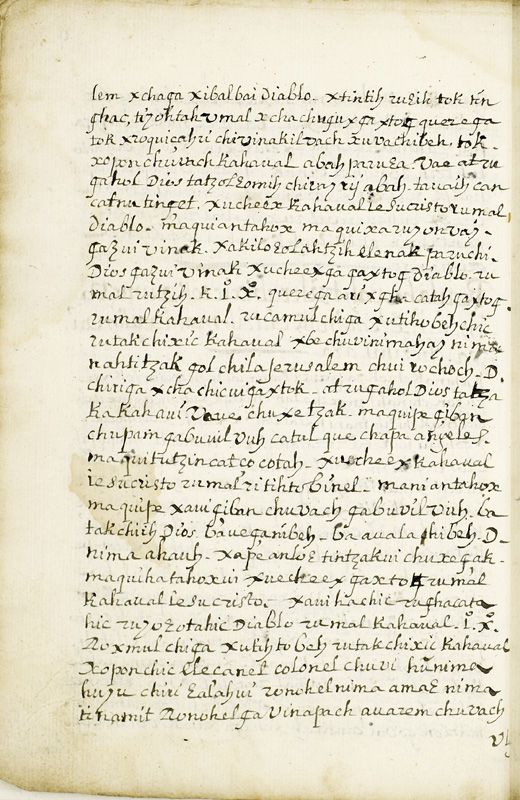 lem xchaga xibalbai Diablo - xtintih ruzih, tok tin
ghac, tiyohtah vmal xchachuguxga xtog querega
tok xroquicahri chivinakil vach xuvachibeh, tok -
xopon chuvach Kahaval abah paruza. Vae at ru
gahol Dios tatzolzomih chiray rij abah. tavaih can
catnu tinget. xucheex Kahaval Iesucristo rumal
Diablo. maquiantahox maquixaruyon vay -
gazui vinak. xakilo zolahtzih elenak paruchi -
Dios gazui vinak xucheexga gaxtog Diablo. ru
mal rutzih. K. I. X. querega ari xgha catah gaxtog
rumal Kahaval. rucamul chiga xutiho beh chic
rutakchixic Kahaval xbe chuvi nimahay nima
nahtitzak gol chila Jerusalem chui rochoch. D.
chiriga xcha chicuiga xtok - at rugahol Dios tatza
ka kahaui Vave chuxe tzak. maquipe giban
chupam gabuvil vuh catul que chapa angeles.
maquitutzin catcocotah - xucheex Kahaval
iesucristo rumal ritihto binel - maniantahox
maquipe xaui giban chuvach gabuvil vuh. ba
tak chiih Dios. bavegaribeh. ba avalaghibeh. D -
nima ahauh. xape anloz tintzakui chuxegak -
maquihatahox vi xuecheex gaxtok rumal
Kahaval Iesucristo - xaui hachic rughacata
hic ruyozotahic Diablo rumal Kahaval. I. X.
Roxmul chiga xutihto beh rutakchixic Kahaval
Xoponchic elecanel colonel chuvi hunima
huyu chiri zalahui ronohel nima amaz nima
tinamit Ronohelga vinapach auarem chuvach